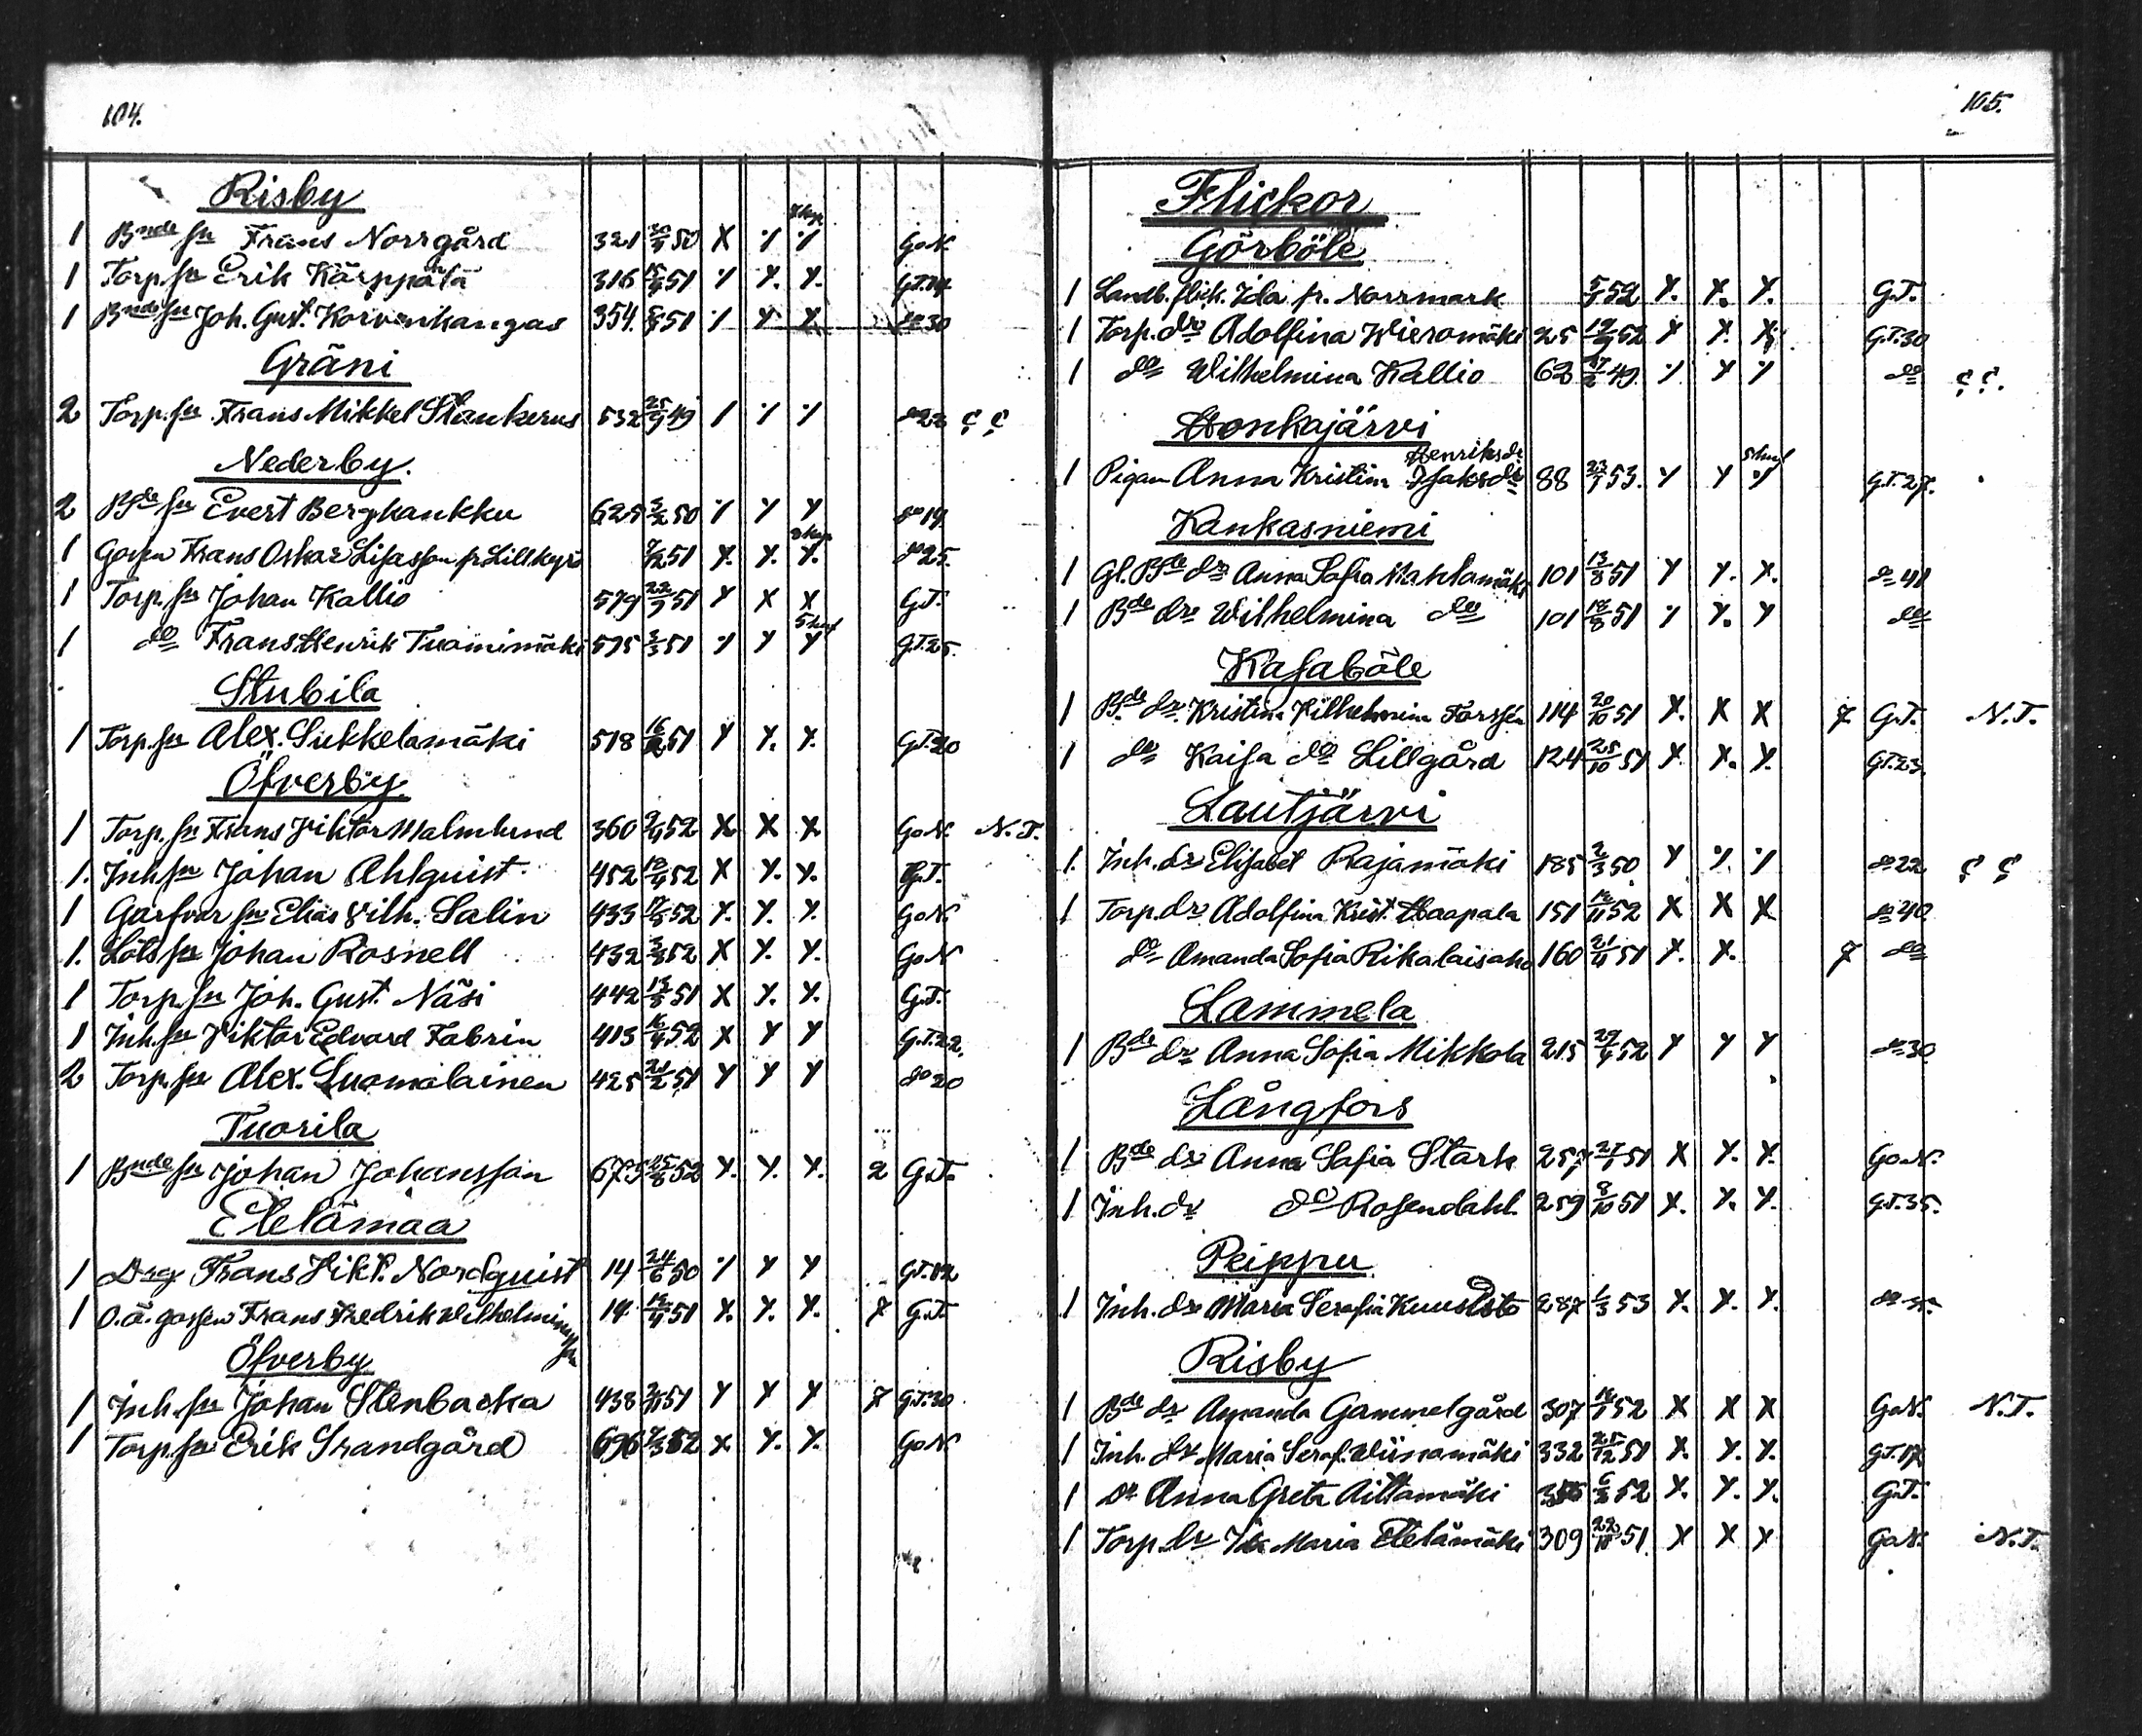 104.
Risby
1 Bnde sn Frans Norrgård 321 30/9 50 X ٪ ٪ GoN
1 Torp. sn Erik Kärppätä 316 15/9 51 ٪ Y. Y. G.T.14
1 Bnde sn Joh. Gust. Korvenkangas 354. 51 ٪ Y X do 30
Gräni
2 Torp. sn Frans Mikkel Stankerus 532 25/9 49 / ٪ ٪ do 22 ç ç
Nederby.
2 Bde sn Evert Bergkankku 625 3/2 50 ٪ Y Y do 19
1 Gossen Frans Oskar Lisasson fr Lillkyro 51 Y. Y. Y. do 25.
1 Torp. sn Johan Kallio 579 22/7 51 Y X X G.T.
1 do Frans Henrik Tuomimäki 575 3/3 51 ٪ Y Y G.T.25.
Stubila
1 Torp. sn Alex. Sukkelamäki 518 51 Y Y. Y. G.T.20
Öfverby.
1 Torp. sn Frans Viktor Malmlund 360 9/4 52 X X X GoN. N.T.
1. Inh sn Johan Ahlquist 452 18/4 52 X Y. Y. G.T.
1 Garfvar sn Elias Vilh. Salin 433 52 Y. Y. Y. GoN.
1. Lots sn Johan Rosnell 432 3/3 52 X Y. Y. GoN
1 Torp. sn Joh. Gust. Näsi 442 51 X Y. Y. G.T.
1 Inh. sn Viktor Edvard Fabrin 413 16/4 52 X Y Y G.T.22.
2 Torp. sn Alex. Luomalainen 425 21/2 51 Y Y Y do 20
Tuorila
1 Bnde sn Johan Johansson 675 25/8 52 Y. Y. Y. 2 G.T.
Etelämaa
1 Drg Frans Vikt. Nordquist 14 24/6 50 ٪ Y Y G.T.12
1 O.ä. gossen Frans Fredrik Wilhelminasson 14 51 X. Y. Y. 7 G.T.
Öfverby
1 Inh. sn Johan Stenbacka 438 51 Y Y Y 7 G.T.30
1 Torp. sn Erik Strandgård 696 52 X Y. Y. GoN
105.
Flickor
Görböle
1 Landb. flick. Ida fr. Norrmark 52 Y. Y. Y. G.T.
1 Torp. dr Adolfina Wieromäki 25 52 Y Y. X G.T.30
1 do Wilhelmina Kallio 62 49 ٪ Y ٪ do ç ç.
Honkajärvi
Henriksdr
1 Pigan Anna Kristina Isaksdr 88 53. Y Y Y G.T.27.
Kankasniemi
1 Gl. Bde dr Anna Sofia Mahlamäki 101 13/8 51 Y Y. X. do 41
1 Bde dr Wilhelmina do 101 18/8 51 ٪ Y. Y do
Kasaböle
1 Bde dr. Kristina Wilhelmina Forssén 114 20/10 51 X. X X 7 G.T. N.T.
1 do Kaisa do Lillgård 124 25/10 51 X X. Y. G.T.23.
Lautjärvi
1. Inh. dr Elisabet Rajamäki 185 2/3 50 Y ٪ ٪ do 22 ç ç
1 Torp. dr Adolfina Krist. Haapala 151 52 X X X do 40
do Amanda Sofia Rikalaisaho 160 21/11 51 X. X. 7 do
Lammela
1 Bde dr Anna Sofia Mikkola 215 29/4 52 Y Y Y do 30
Långfors
1 Bde dr Anna Sofia Stark 257 51 X Y. Y. GoN.
1 Inh. dr do Rosendahl 259 9/10 51 X. Y. Y. G.T.35.
Peippu
1 Inh. dr Maria Serafia Kuusisto 287 1/3 53 Y. Y. Y.
Risby
1 Bde dr Amanda Gammelgård 307 52 X X X GoN. N.T.
1 Inh. dr Maria Seraf. Wiinamäki 332 25/12 51 X. Y. Y. G.T.17
1 Dr Anna Greta Aittamäki 52 X. Y. Y. G.T.
1 Torp. dr Ida Maria Etelämäki 309 22/10 51. X X X GoN. N.T.